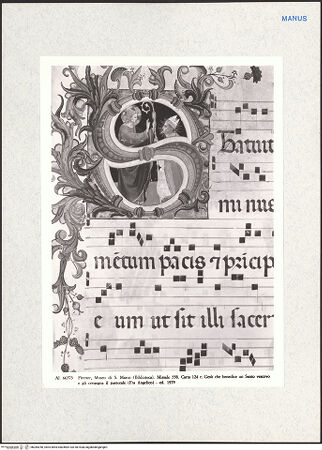 MANUS
Statuit
mi nus
mētum pacis ⁊ prīcip
e um ut sit illi sacer
Firenze, Museo di S. Marco (Biblioteca). Messale 558. Carta 124 r. Gesù che benedice un Santo vescovo
e gli consegna il pastorale (Fra Angelico) - ed. 1959